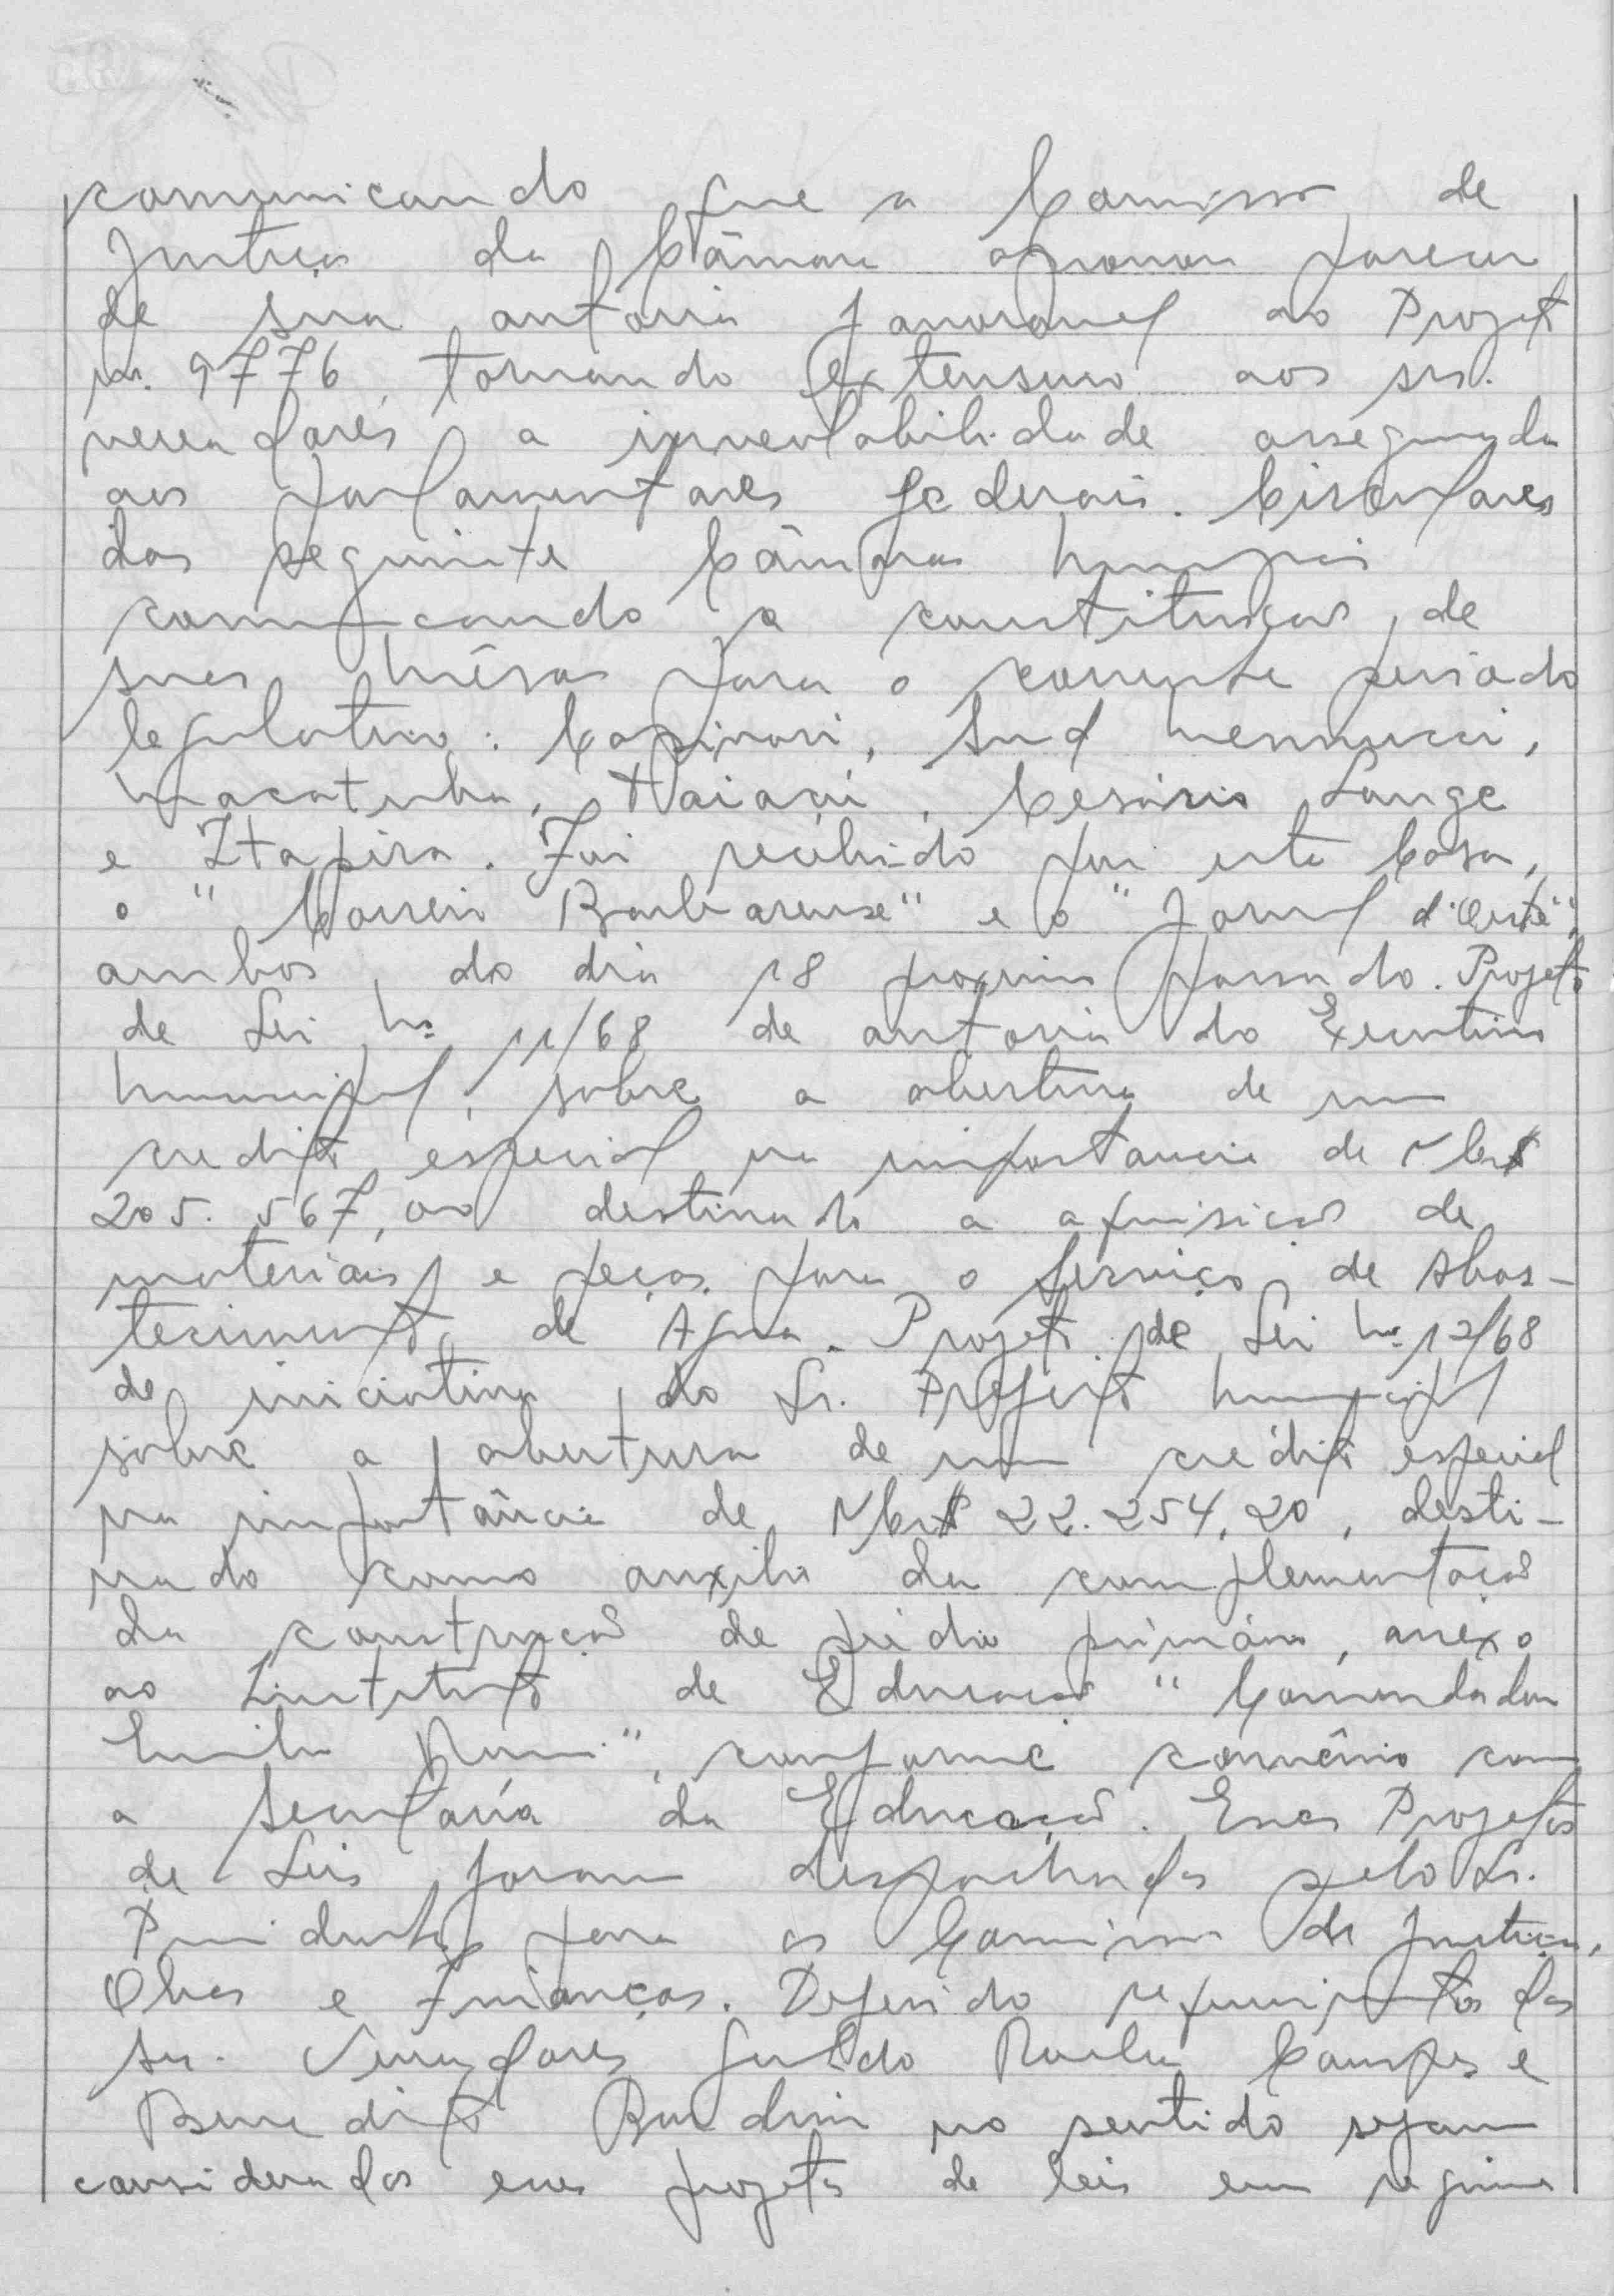 comunicando que a Comissão de
Justiça da Câmara aprovou parecer
de sua autoria favoravel ao Projeto
n. 9776, tornando extensivo aos srs.
vereadores a inviolabilidade assegurada
aos parlamentares federais. Circulares
das seguinte Câmaras Municipais
comunicando a constituição de
suas Mêsas para o corrente periodo
legislativo: Capivari, Sud Mennucci,
Macatuba, Taiaçú, Cesário Lange
e Itapira. Foi recebido por esta Casa,
o "Correio Barbarense" e o "Jornal d'Oeste",
ambos, do dia 18 proximo passado. Projeto
de Lei nº 11/68 de autoria do Executivo
Municipal, sobre a abertura de um
credito especial na importancia de NCr$
205.567,00 destinado a aquisição de
materiais e peças para o Serviço de Abas-
tecimento de Agua. Projeto de Lei nº 12/68
de iniciativa do Sr. Prefeito Municipal
sobre a abertura de um crédito especial
na importância de NCr$ 22.254,20, desti-
nado como auxilio da complementação
da construção de prédio primário, anéxo
ao Instituto de Educação "Comendador
Emilio Romi", conforme convênio com
a Secretaría da Educação. Esses Projetos
de Leis foram despachados pelo Sr.
Presidente para as Comissões de Justiça,
Obras e Finanças. Deferido requerimentos dos
srs. Vereadores Geraldo Rocha Campos e
Benedito Bardini no sentido sejam
considerados esses projetos de leis em regime